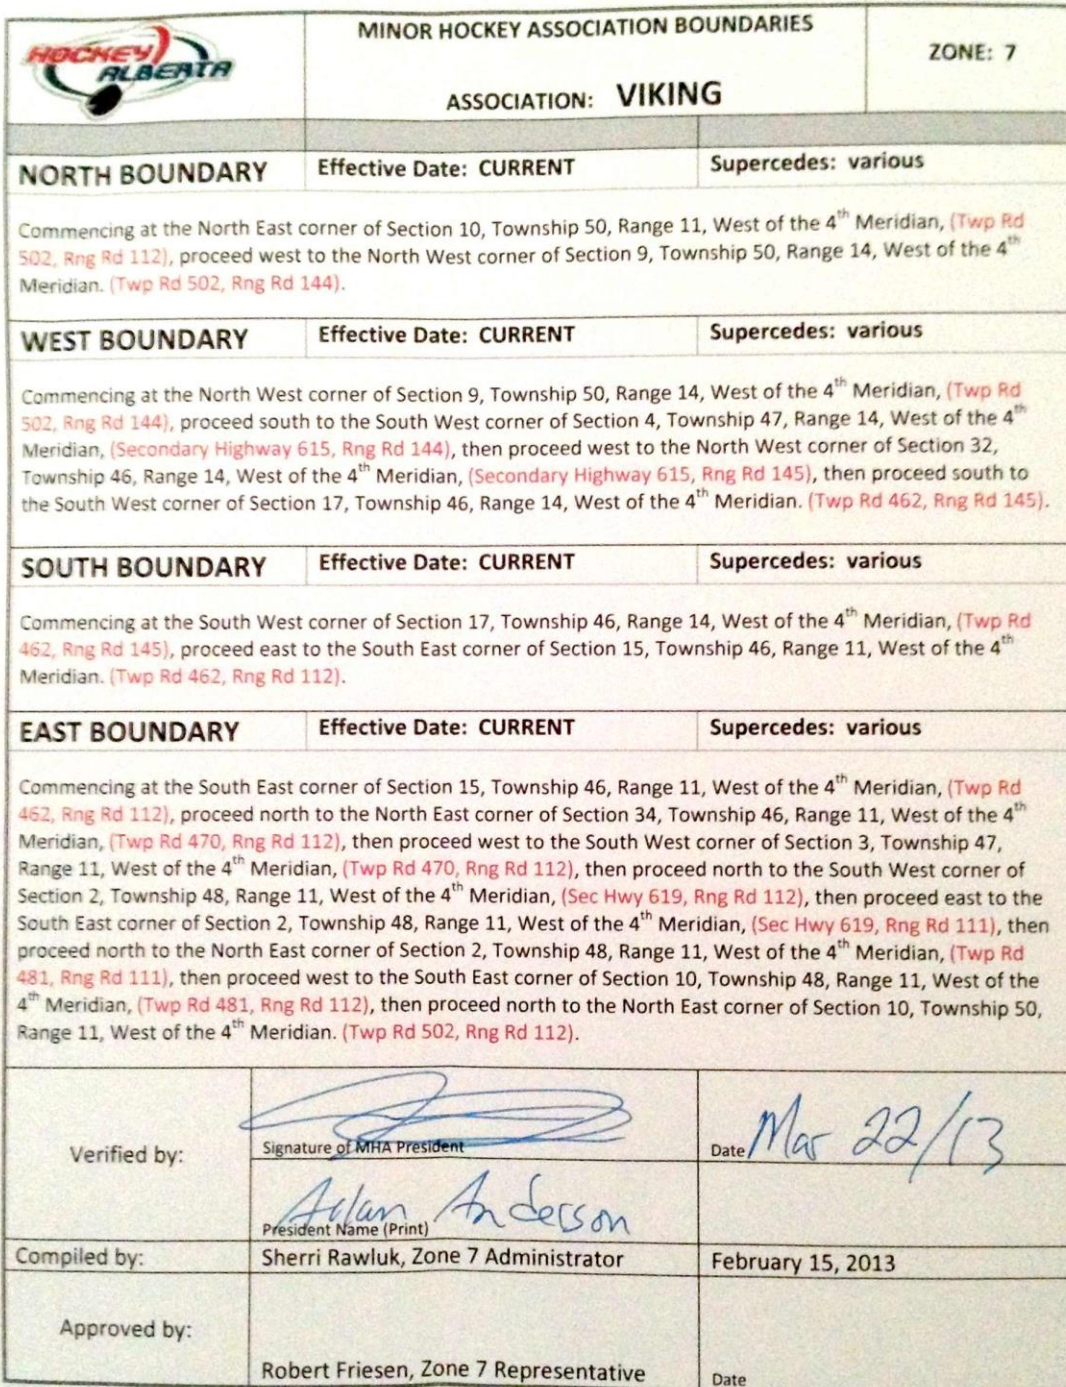 HOCKEY
ALBERTA
MINOR HOCKEY ASSOCIATION BOUNDARIES
ASSOCIATION: VIKING
ZONE: 7
NORTH BOUNDARY Effective Date: CURRENT Supercedes: various
Commencing at the North East corner of Section 10, Township 50, Range 11, West of the 4th Meridian, (Twp Rd
502, Rng Rd 112), proceed west to the North West corner of Section 9, Township 50, Range 14, West of the 4th
Meridian. (Twp Rd 502, Rng Rd 144).
WEST BOUNDARY Effective Date: CURRENT Supercedes: various
Commencing at the North West corner of Section 9, Township 50, Range 14, West of the 4th Meridian, (Twp Rd
502, Rng Rd 144), proceed south to the South West corner of Section 4, Township 47, Range 14, West of the 4th
Meridian, (Secondary Highway 615, Rng Rd 144), then proceed west to the North West corner of Section 32,
Township 46, Range 14, West of the 4th Meridian, (Secondary Highway 615, Rng Rd 145), then proceed south to
the South West corner of Section 17, Township 46, Range 14, West of the 4th Meridian. (Twp Rd 462, Rng Rd 145).
SOUTH BOUNDARY Effective Date: CURRENT Supercedes: various
Commencing at the South West corner of Section 17, Township 46, Range 14, West of the 4th Meridian, (Twp Rd
462, Rng Rd 145), proceed east to the South East corner of Section 15, Township 46, Range 11, West of the 4th
Meridian. (Twp Rd 462, Rng Rd 112).
EAST BOUNDARY Effective Date: CURRENT Supercedes: various
Commencing at the South East corner of Section 15, Township 46, Range 11, West of the 4th Meridian, (Twp Rd
462, Rng Rd 112), proceed north to the North East corner of Section 34, Township 46, Range 11, West of the 4th
Meridian, (Twp Rd 470, Rng Rd 112), then proceed west to the South West corner of Section 3, Township 47,
Range 11, West of the 4th Meridian, (Twp Rd 470, Rng Rd 112), then proceed north to the South West corner of
Section 2, Township 48, Range 11, West of the 4th Meridian, (Sec Hwy 619, Rng Rd 112), then proceed east to the
South East corner of Section 2, Township 48, Range 11, West of the 4th Meridian, (Sec Hwy 619, Rng Rd 111), then
proceed north to the North East corner of Section 2, Township 48, Range 11, West of the 4th Meridian, (Twp Rd
481, Rng Rd 111), then proceed west to the South East corner of Section 10, Township 48, Range 11, West of the
4th Meridian, (Twp Rd 481, Rng Rd 112), then proceed north to the North East corner of Section 10, Township 50,
Range 11, West of the 4th Meridian. (Twp Rd 502, Rng Rd 112).
Verified by:
Signature of MHA President
Date Mar 22/13
Anderson
President Name (Print)
Compiled by: Sherri Rawluk, Zone 7 Administrator February 15, 2013
Approved by:
Robert Friesen, Zone 7 Representative Date